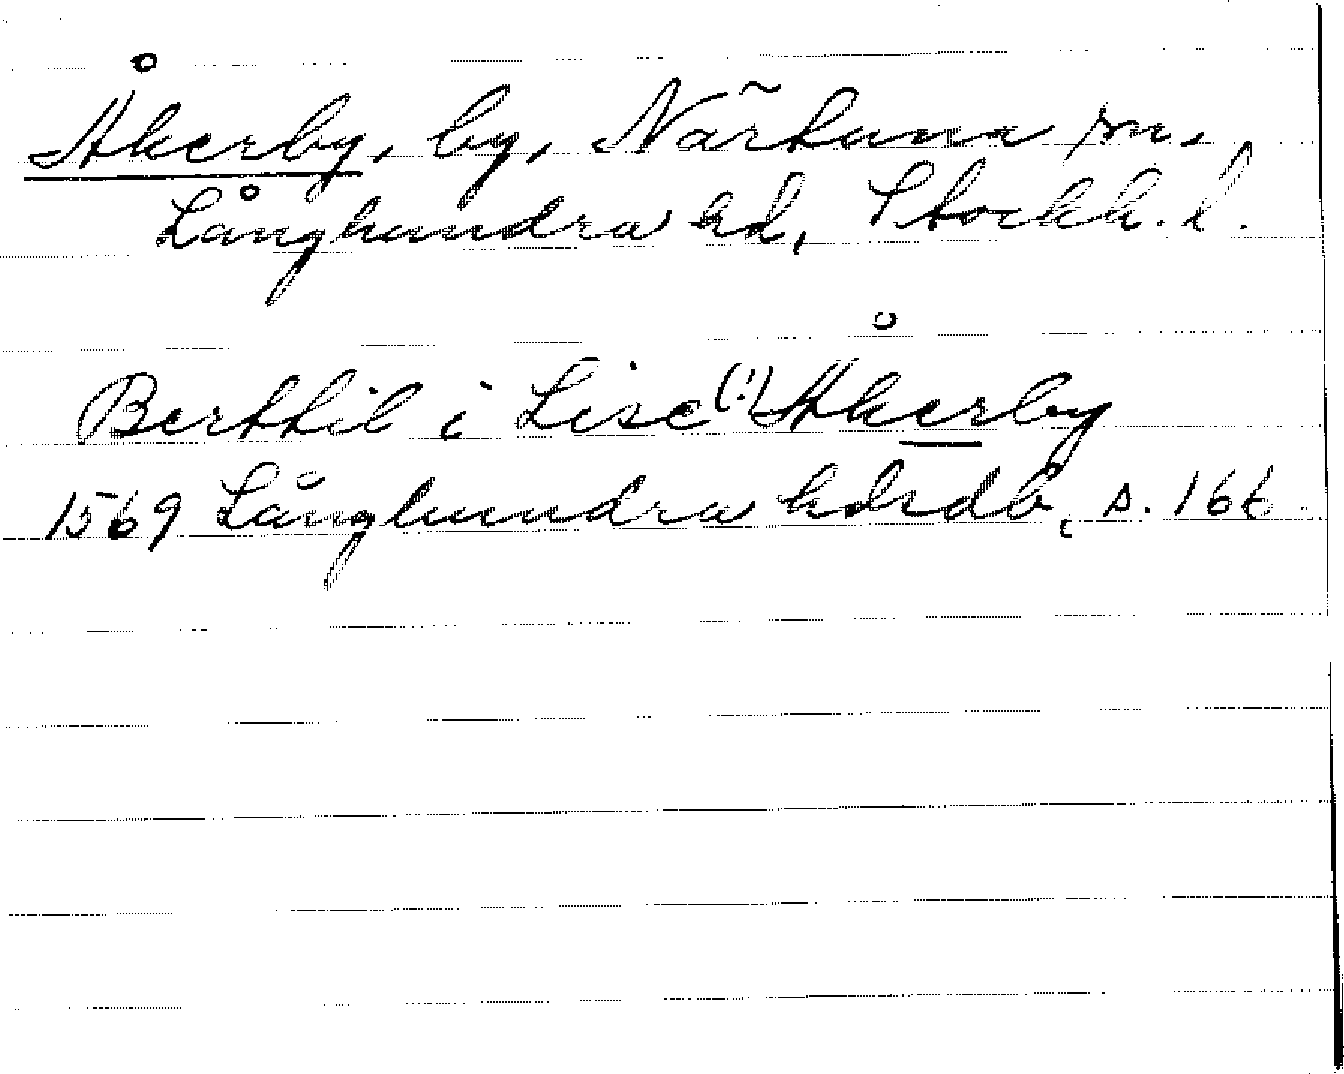 Åkerby, by, Närtuna sn.,
Långhundra hd, Stockh. l.
Berttil i Lise(!) Åkerby
1569 Långhundra hdrdb, s. 166.